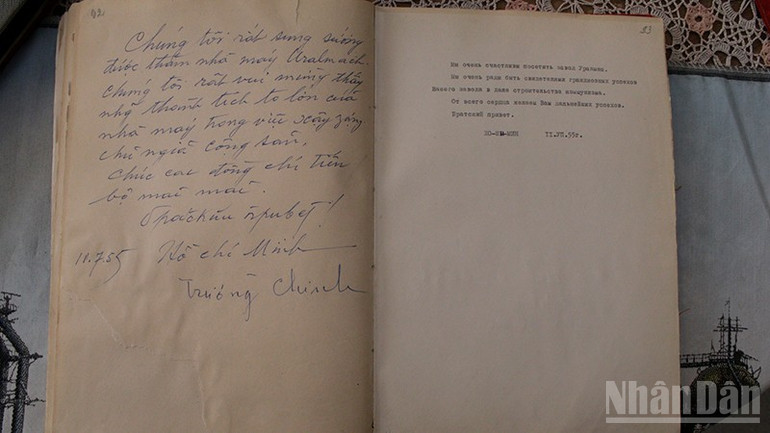 92.
Chúng tôi rất sung sướng
được thăm nhà máy Uralmach.
Chúng tôi rất vui mừng thấy
những thành tích to lớn của
nhà máy trong việc xây dựng
chủ nghĩa cộng sản,
chúc các đồng chí tiến
bộ mãi mãi.
Братский привет!
11.7.55 Hồ Chí Minh
Trường Chinh
93
Мы очень счастливы посетить завод Уралмаш.
Мы очень рады быть свидетелями грандиозных успехов
Вашего завода в деле строительства коммунизма.
От всего сердца желаем Вам дальнейших успехов.
Братский привет.
ХО-ШИ-МИН 11.УП.55г.
NhânDân